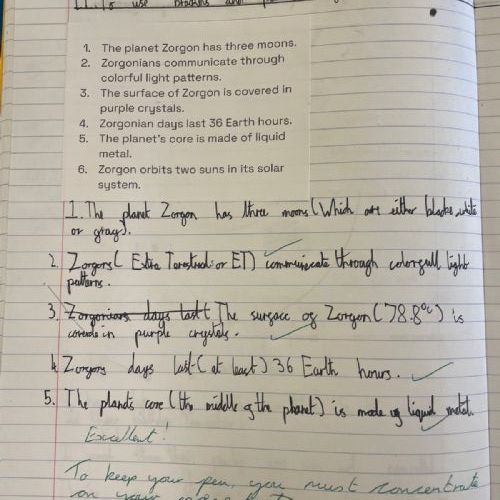 11. To use brackets and
1. The planet Zorgon has three moons.
2. Zorgonians communicate through
colorful light patterns.
3. The surface of Zorgon is covered in
purple crystals.
4. Zorgonian days last 36 Earth hours.
5. The planet's core is made of liquid
metal.
6. Zorgon orbits two suns in its solar
system.
1. The planet Zorgon has three moons (Which are either blacke, white
or gray).
2. Zorgons ( Extra Terestreal or ET) communicate through colorgull light
patterns.
3. Zorgonians days last The surgace og Zorgon (78.8°c) is
in purple crystals.
4. Zorgons days last (at least) 36 Earth hours.
5. The planets core (the middle of the planet) is made og liquid metal.
Excellent!
To keep your pen, you must concentrate
on your